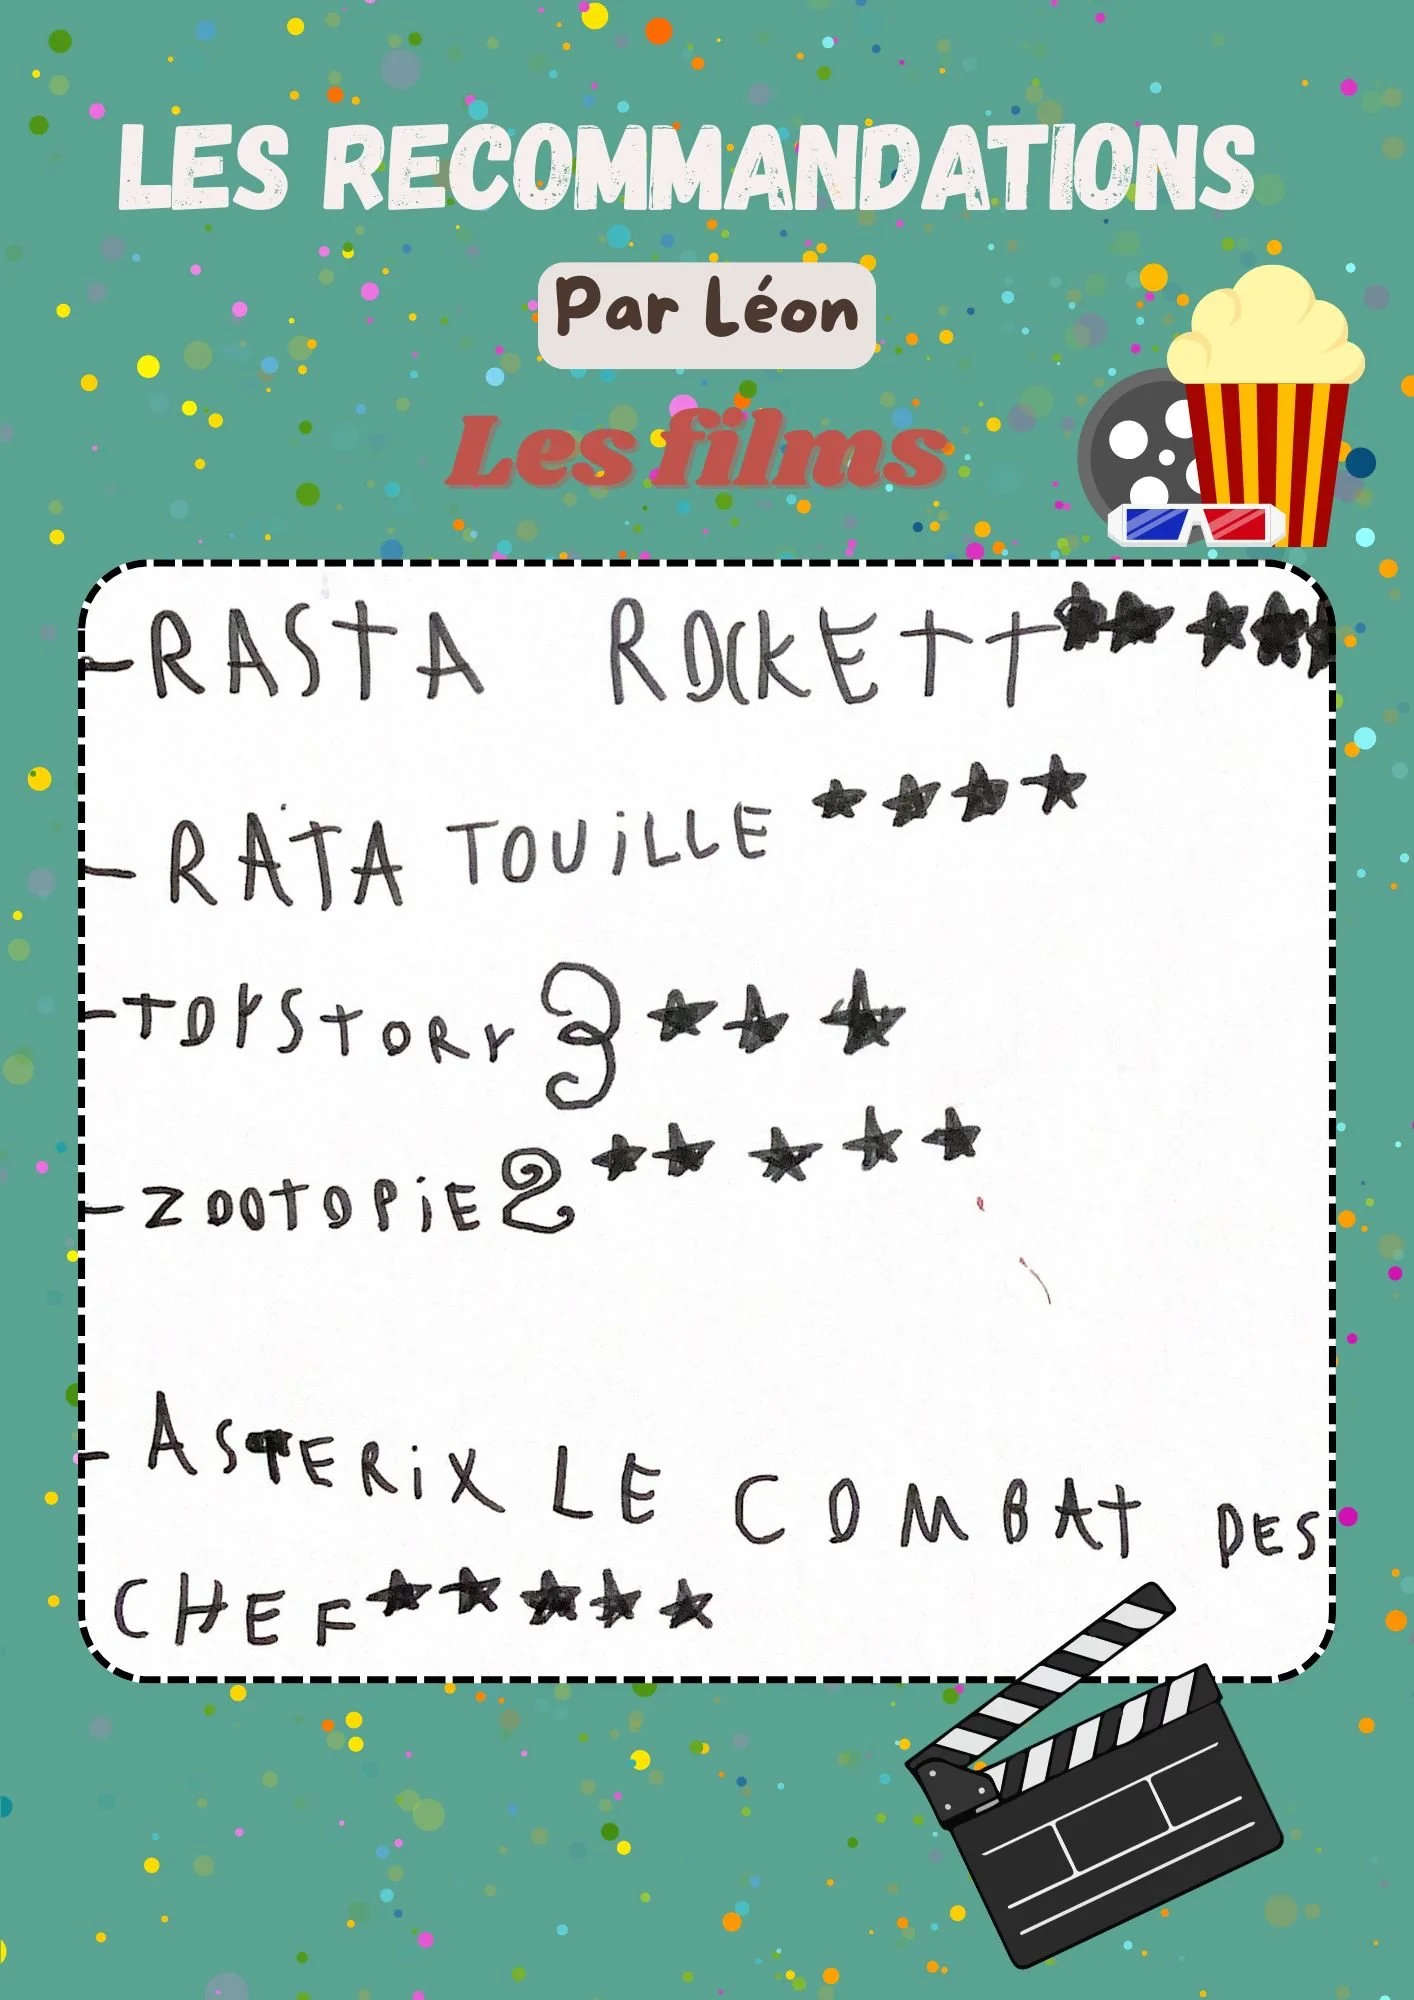 LES RECOMMANDATIONS
Par Léon
Les films
- RASTA ROCKETT ★★★★★
- RATATOUILLE ★★★★
- TOYSTORY 3 ★★★
- ZOOTOPIE 2 ★★★★★
- ASTERIX LE COMBAT DES
CHEF ★★★★★